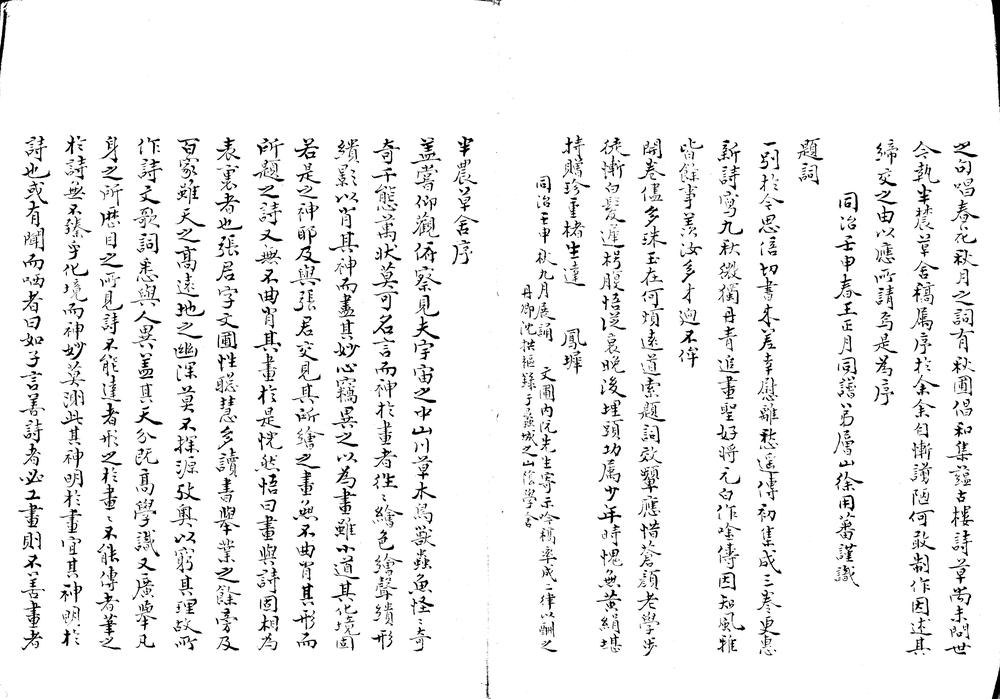 之句唱春花秋月之詞有秋圃倡和集蘊古樓詩草尚未問世
今執半農草舍稿屬序於余余自慚譾陋何敢制作因述其
締交之由以應所請焉是為序
同治壬申春王正月同譜弟層山徐用蕃謹識
題詞
一別於今思倍切書來差幸慰離愁遥傳初集成三卷更惠
新詩寫九秋緻獨丹青追畫聖好將元白作唫儔因知風雅
皆餘事羨汝多才迥不侔
開卷儘多珠玉在何煩遠道索題詞效顰應惜蒼顔老學步
徒漸白髮遲枵腹悟從衰晚後埋頭功屬少年時愧無黃絹堪
持贈珍重楮生達 鳳墀
同治壬申秋九月展誦 文圃內阮先生寄示唫稿率成二律以酬之
丹卿沈拱樞録于蕪城之山陰學舍
半農草舍序
蓋嘗仰觀俯察見夫宇宙之中山川草木鳥獸蟲魚怪怪奇
奇千態萬狀莫可名言而神於畫者往往繪色繪聲繢形
繢影以肖其神而盡其妙心竊異之以為畫雖小道其化境固
若是之神耶及與張君交見其所繪之畫無不曲肖其形而
所題之詩又無不曲肖其畫於是恍然悟曰畫與詩固相為
表裏者也張君字文圃性聰慧多讀書舉業之餘旁及
百家雖天之高遠地之幽深莫不探源攷奧以窮其理故所
作詩文歌詞悉與人異蓋其天分既高學識又廣舉凡
身之所歷目之所見詩不能達者形之於畫畫不能傳者筆之
於詩無不臻乎化境而神妙莫測此其神明於畫宜其神明於
詩也或有聞而哂者曰如子言善詩者必工畫則不善畫者